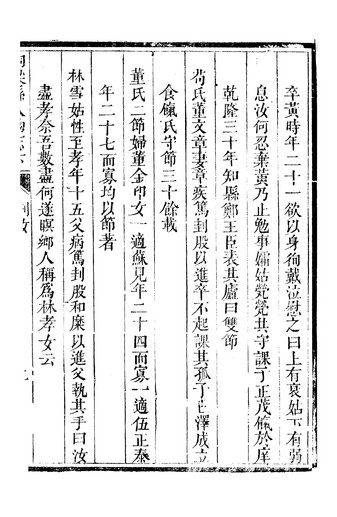 卒黄時年二十一欲以身徇戴泣慰之曰上有哀姑下有弱
息汝何忍棄黄乃止勉事孀姑煢煢共守課子正茂餼於庠
乾隆三十年知縣鄭王臣表其廬曰雙節
苟氏董文章妻章疾篤刲股以進卒不起課其孤子 澤成立
食餼氏守節三十餘載
董氏二節婦董金印女一適蘇見年二十四而寡一適伍正奉
年二十七而寡均以節著
林雪姑性至孝年十五父病篤刲股和糜以進父執其手曰汝
盡孝奈吾數盡何遂瞑鄉人稱爲林孝女云